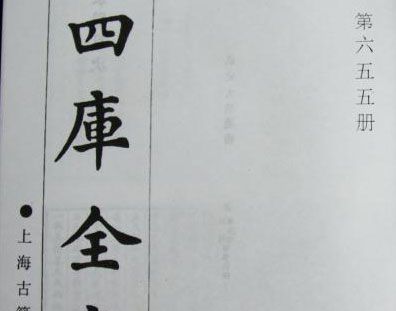 第六五五册
四庫全
上海古